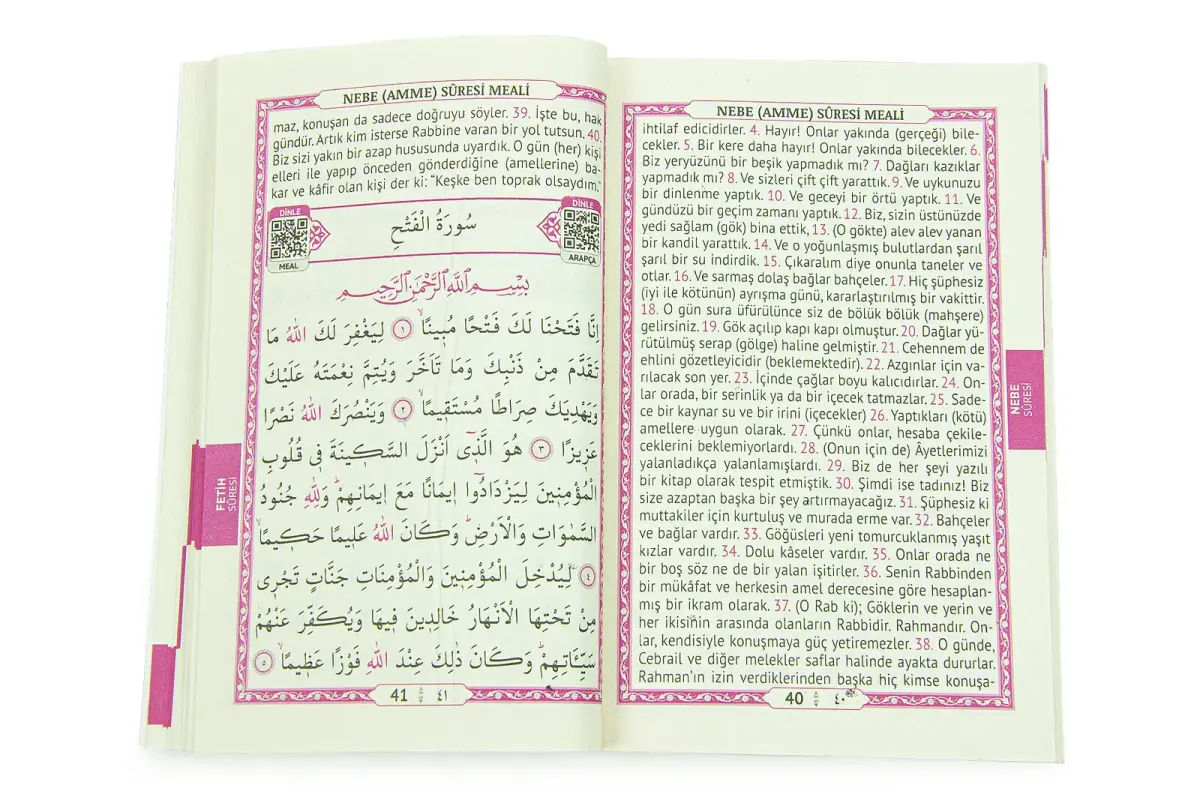 NEBE (AMME) SÛRESİ MEALİ
ihtilaf edicidirler. 4. Hayır! Onlar yakında (gerçeği) bile-
cekler. 5. Bir kere daha hayır! Onlar yakında bilecekler. 6.
Biz yeryüzünü bir beşik yapmadık mı? 7. Dağları kazıklar
yapmadık mı? 8. Ve sizleri çift çift yarattık. 9. Ve uykunuzu
bir dinlenme yaptık. 10. Ve geceyi bir örtü yaptık. 11. Ve
gündüzü bir geçim zamanı yaptık. 12. Biz, sizin üstünüzde
yedi sağlam (gök) bina ettik, 13. (O gökte) alev alev yanan
bir kandil yarattık. 14. Ve o yoğunlaşmış bulutlardan şarıl
şarıl bir su indirdik. 15. Çıkaralım diye onunla taneler ve
otlar. 16. Ve sarmaş dolaş bağlar bahçeler. 17. Hiç şüphesiz
(iyi ile kötünün) ayrışma günü, kararlaştırılmış bir vakittir.
18. O gün sura üfürülünce siz de bölük bölük (mahşere)
gelirsiniz. 19. Gök açılıp kapı kapı olmuştur. 20. Dağlar yü-
rütülmüş serap (gölge) haline gelmiştir. 21. Cehennem de
ehlini gözetleyicidir (beklemektedir). 22. Azgınlar için va-
rılacak son yer. 23. İçinde çağlar boyu kalıcıdırlar. 24. On-
lar orada, bir serinlik ya da bir içecek tatmazlar. 25. Sade-
ce bir kaynar su ve bir irini (içecekler) 26. Yaptıkları (kötü)
amellere uygun olarak. 27. Çünkü onlar, hesaba çekile-
ceklerini beklemiyorlardı. 28. (Onun için de) Âyetlerimizi
yalanladıkça yalanlamışlardı. 29. Biz de her şeyi yazılı
bir kitap olarak tespit etmiştik. 30. Şimdi ise tadınız! Biz
size azaptan başka bir şey artırmayacağız. 31. Şüphesiz ki
muttakiler için kurtuluş ve murada erme var. 32. Bahçeler
ve bağlar vardır. 33. Göğüsleri yeni tomurcuklanmış yaşıt
kızlar vardır. 34. Dolu kâseler vardır. 35. Onlar orada ne
bir boş söz ne de bir yalan işitirler. 36. Senin Rabbinden
bir mükâfat ve herkesin amel derecesine göre hesaplan-
mış bir ikram olarak. 37. (O Rab ki); Göklerin ve yerin ve
her ikisinin arasında olanların Rabbidir. Rahmandır. On-
lar, kendisiyle konuşmaya güç yetiremezler. 38. O günde,
Cebrail ve diğer melekler saflar halinde ayakta dururlar.
Rahman'ın izin verdiklerinden başka hiç kimse konuşa-
40 ٤٠
NEBE
SÛRESİ
NEBE (AMME) SÛRESİ MEALİ
maz, konuşan da sadece doğruyu söyler. 39. İşte bu, hak
gündür. Artık kim isterse Rabbine varan bir yol tutsun. 40.
Biz sizi yakın bir azap hususunda uyardık. O gün (her) kişi
elleri ile yapıp önceden gönderdiğine (amellerine) ba-
kar ve kâfir olan kişi der ki: "Keşke ben toprak olsaydım."
DİNLE
MEAL
سُورَةُ الْفَتْحِ
DİNLE
ARAPÇA
بِسْمِ اللّٰهِ الرَّحْمٰنِ الرَّحِيمِ
اِنَّا فَتَحْنَا لَكَ فَتْحًا مُبِينًاۙ ﴿١﴾ لِيَغْفِرَ لَكَ اللّٰهُ مَا
تَقَدَّمَ مِنْ ذَنْبِكَ وَمَا تَاَخَّرَ وَيُتِمَّ نِعْمَتَهُ عَلَيْكَ
وَيَهْدِيَكَ صِرَاطًا مُسْتَقِيمًاۙ ﴿٢﴾ وَيَنْصُرَكَ اللّٰهُ نَصْرًا
عَزِيزًا ﴿٣﴾ هُوَ الَّذٓي اَنْزَلَ السَّكِينَةَ فِي قُلُوبِ
الْمُؤْمِنِينَ لِيَزْدَادُٓوا اِيمَانًا مَعَ اِيمَانِهِمْۜ وَلِلّٰهِ جُنُودُ
السَّمٰوَاتِ وَالْاَرْضِۜ وَكَانَ اللّٰهُ عَلِيمًا حَكِيمًاۙ
﴿٤﴾ لِيُدْخِلَ الْمُؤْمِنِينَ وَالْمُؤْمِنَاتِ جَنَّاتٍ تَجْرِي
مِنْ تَحْتِهَا الْاَنْهَارُ خَالِدِينَ فِيهَا وَيُكَفِّرَ عَنْهُمْ
سَيِّـَٔاتِهِمْۜ وَكَانَ ذٰلِكَ عِنْدَ اللّٰهِ فَوْزًا عَظِيمًاۙ ﴿٥﴾
41 ٤١
FETİH
SÛRESİ